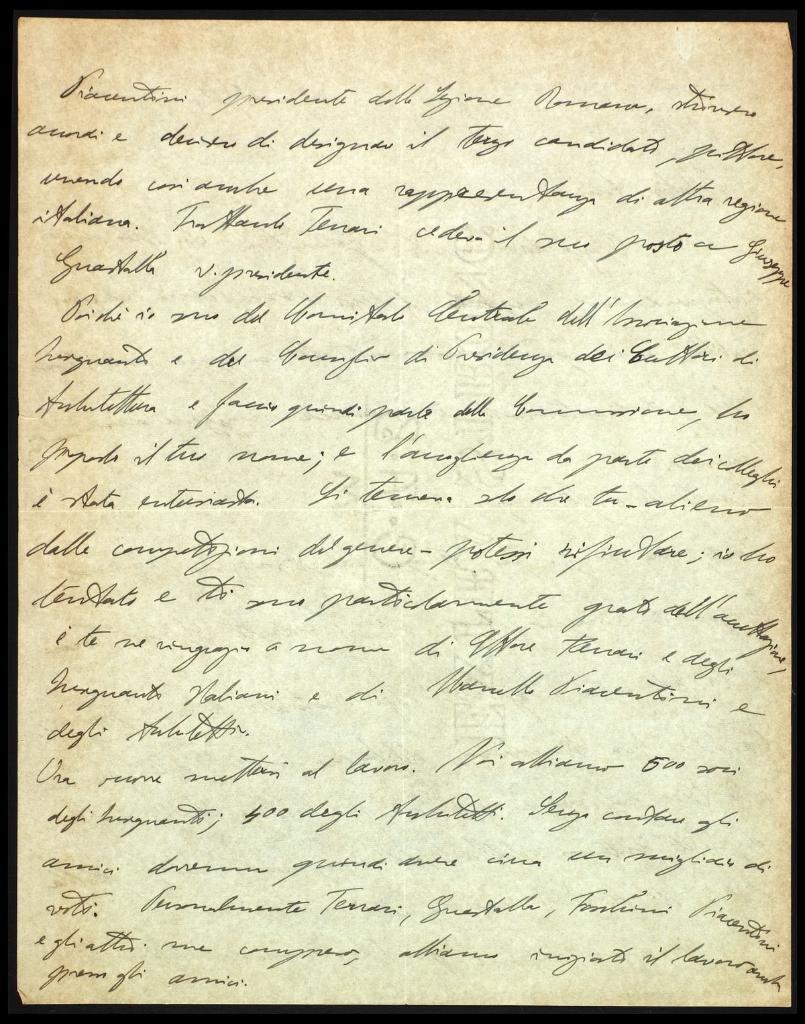 Piacentini presidente della Sezione Romana, strinsero
accordi e decisero di designare il terzo candidato, pittore,
avendo così anche una rappresentanza di altra regione
italiana. Frattanto Ferrari cedeva il suo posto a Giuseppe
Guastalla v. presidente.
Poiché io sono del Comitato Centrale dell'Associazione
Insegnanti e del Consiglio di Presidenza dei Cultori di
Architettura e faccio quindi parte della Commissione, ho
proposto il tuo nome; e l'accoglienza da parte dei colleghi
è stata entusiasta. Si temeva solo che tu - alieno
dalle competizioni del genere - potessi rifiutare; io ho
tentato e ti sono particolarmente grato dell'accettazione,
e te ne ringrazio a nome di Ettore Ferrari e degli
Insegnanti Italiani e di Marcello Piacentini e
degli Architetti.
Ora occorre mettersi al lavoro. Noi abbiamo 500 soci
degli Insegnanti; 400 degli Architetti. Senza contare gli
amici dovremmo quindi avere circa un migliaio di
voti. Personalmente Ferrari, Guastalla, Foschini Piacentini
e gli altri me compreso, abbiamo iniziato il lavoro anche
presso gli amici.